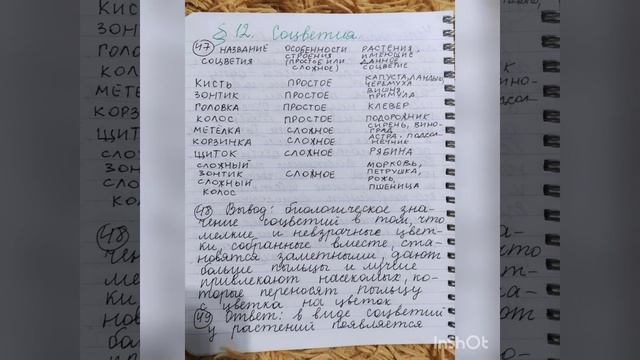 § 12. Соцветия.
47 НАЗВАНИЕ СОЦВЕТИЯ ОСОБЕННОСТИ СТРОЕНИЯ (ПРОСТОЕ ИЛИ СЛОЖНОЕ) РАСТЕНИЯ, ИМЕЮЩИЕ ДАННОЕ СОЦВЕТИЕ
КИСТЬ ПРОСТОЕ КАПУСТА, ЛАНДЫШ, ЧЕРЕМУХА
ЗОНТИК ПРОСТОЕ ВИШНЯ, ПРИМУЛА
ГОЛОВКА ПРОСТОЕ КЛЕВЕР
КОЛОС ПРОСТОЕ ПОДОРОЖНИК
МЕТЕЛКА СЛОЖНОЕ СИРЕНЬ, ВИНОГРАД
КОРЗИНКА СЛОЖНОЕ АСТРА, ПОДСОЛНЕЧНИК
ЩИТОК СЛОЖНОЕ РЯБИНА
СЛОЖНЫЙ ЗОНТИК СЛОЖНОЕ МОРКОВЬ, ПЕТРУШКА,
СЛОЖНЫЙ КОЛОС РОЖЬ, ПШЕНИЦА
48 Вывод: биологическое зна-
чение соцветий в том, что
мелкие и невзрачные цвет-
ки, собранные вместе, ста-
новятся заметными, дают
больше пыльцы и лучше
привлекают насекомых, ко-
торые переносят пыльцу
с цветка на цветок
49 Ответ: в виде соцветий
у растений появляется
InShOt